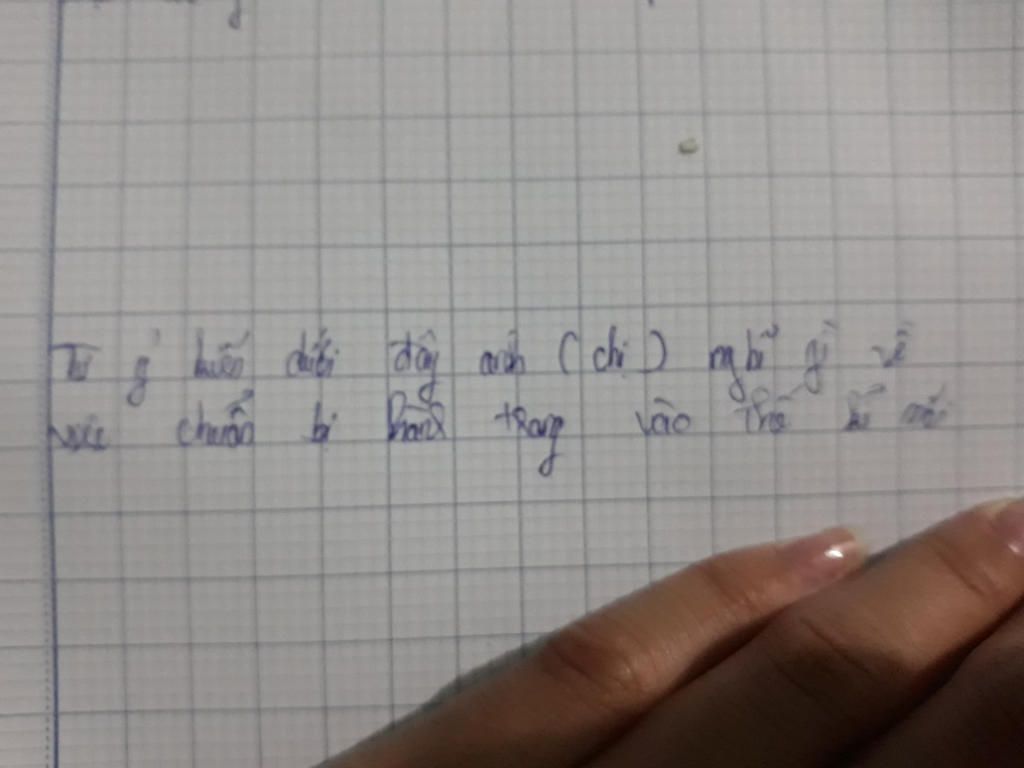 Từ ý kiến dưới đây anh (chị) nghĩ gì về
việc chuẩn bị hành trang vào thế kỉ mới